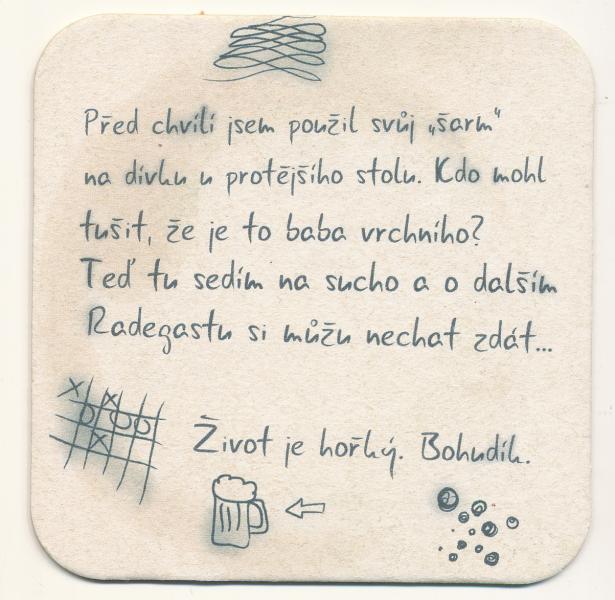 Před chvílí jsem použil svůj „šarm“
na dívku u protějšího stolu. Kdo mohl
tušit, že je to baba vrchního?
Teď tu sedím na sucho a o dalším
Radegastu si můžu nechat zdát...
Život je hořký. Bohudík.